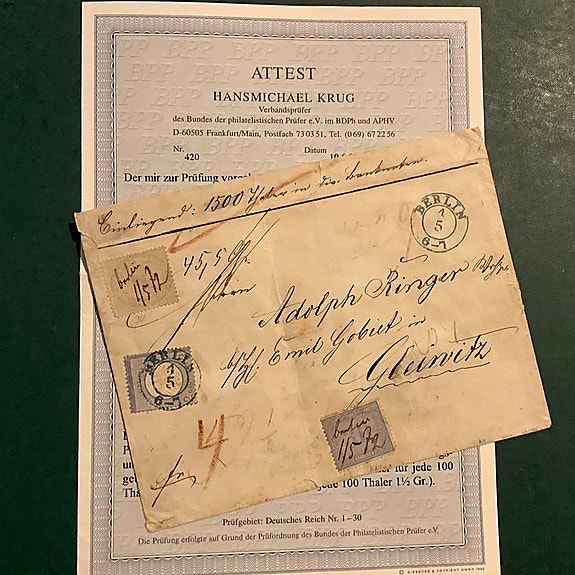 ATTEST
HANSMICHAEL KRUG
Verbandsprüfer
des Bundes der philatelistischen Prüfer e.V. im BDPh und APHV
D-60505 Frankfurt/Main, Postfach 730351, Tel. (069) 672256
Nr. Datum
420
Der mir zur Prüfung
Einliegend: 1500 Thaler in div. Banknoten.
BERLIN
1
5
6-7
berlin
1/5 72
Herrn
Adolph Ringer
BERLIN
1
5
6-7
Emil Gobiet in
Gleiwitz
4
fr.
berlin
1/5 72
für jede 100
jede 100 Thaler 1½ Gr.).
Prüfgebiet: Deutsches Reich Nr. 1–30
Die Prüfung erfolgte auf Grund der Prüfordnung des Bundes der Philatelistischen Prüfer e.V.